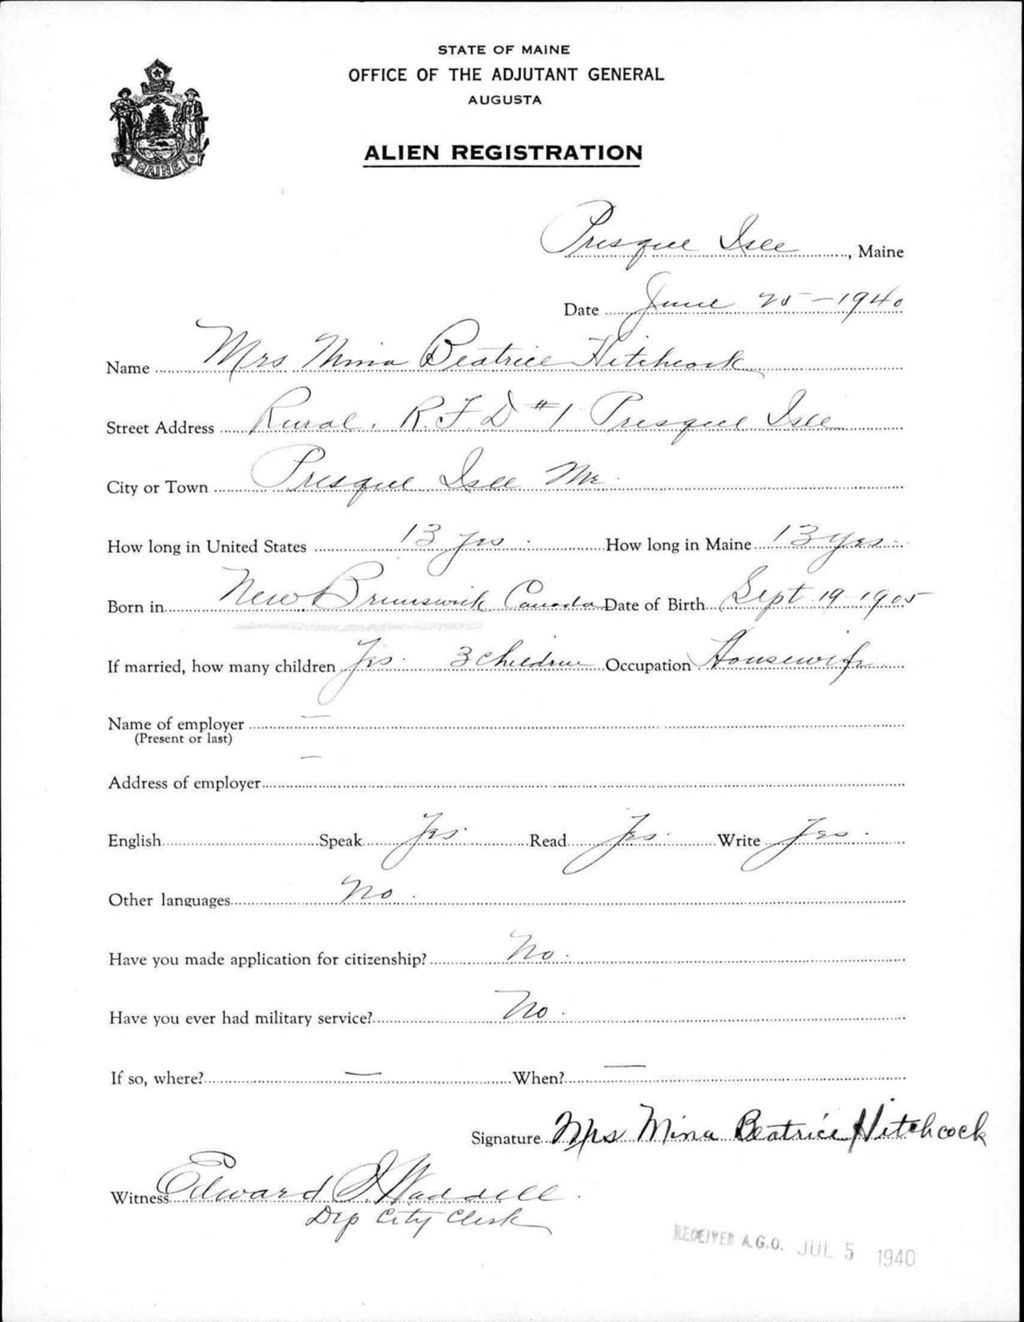 STATE OF MAINE
OFFICE OF THE ADJUTANT GENERAL
AUGUSTA
MAINE
ALIEN REGISTRATION
Presque Isle, Maine
Date June 25-1940
Name Mrs Mina Beatrice Hitchcock
Street Address Rural. R.F.D #1 Presque Isle
City or Town Presque Isle Me.
How long in United States 13 yrs. How long in Maine 13 yrs.
Born in New Brunswick Canada Date of Birth Sept 19 1905
If married, how many children Yes. 3 children Occupation Housewife
Name of employer —
(Present or last)
Address of employer —
English Speak Yes. Read Yes. Write Yes.
Other languages No.
Have you made application for citizenship? No.
Have you ever had military service? No.
If so, where? — When? —
Signature Mrs Mina Beatrice Hitchcock
Witness Edward J Waddell.
Dep City Clerk
RECEIVED A.G.O. JUL 5 1940